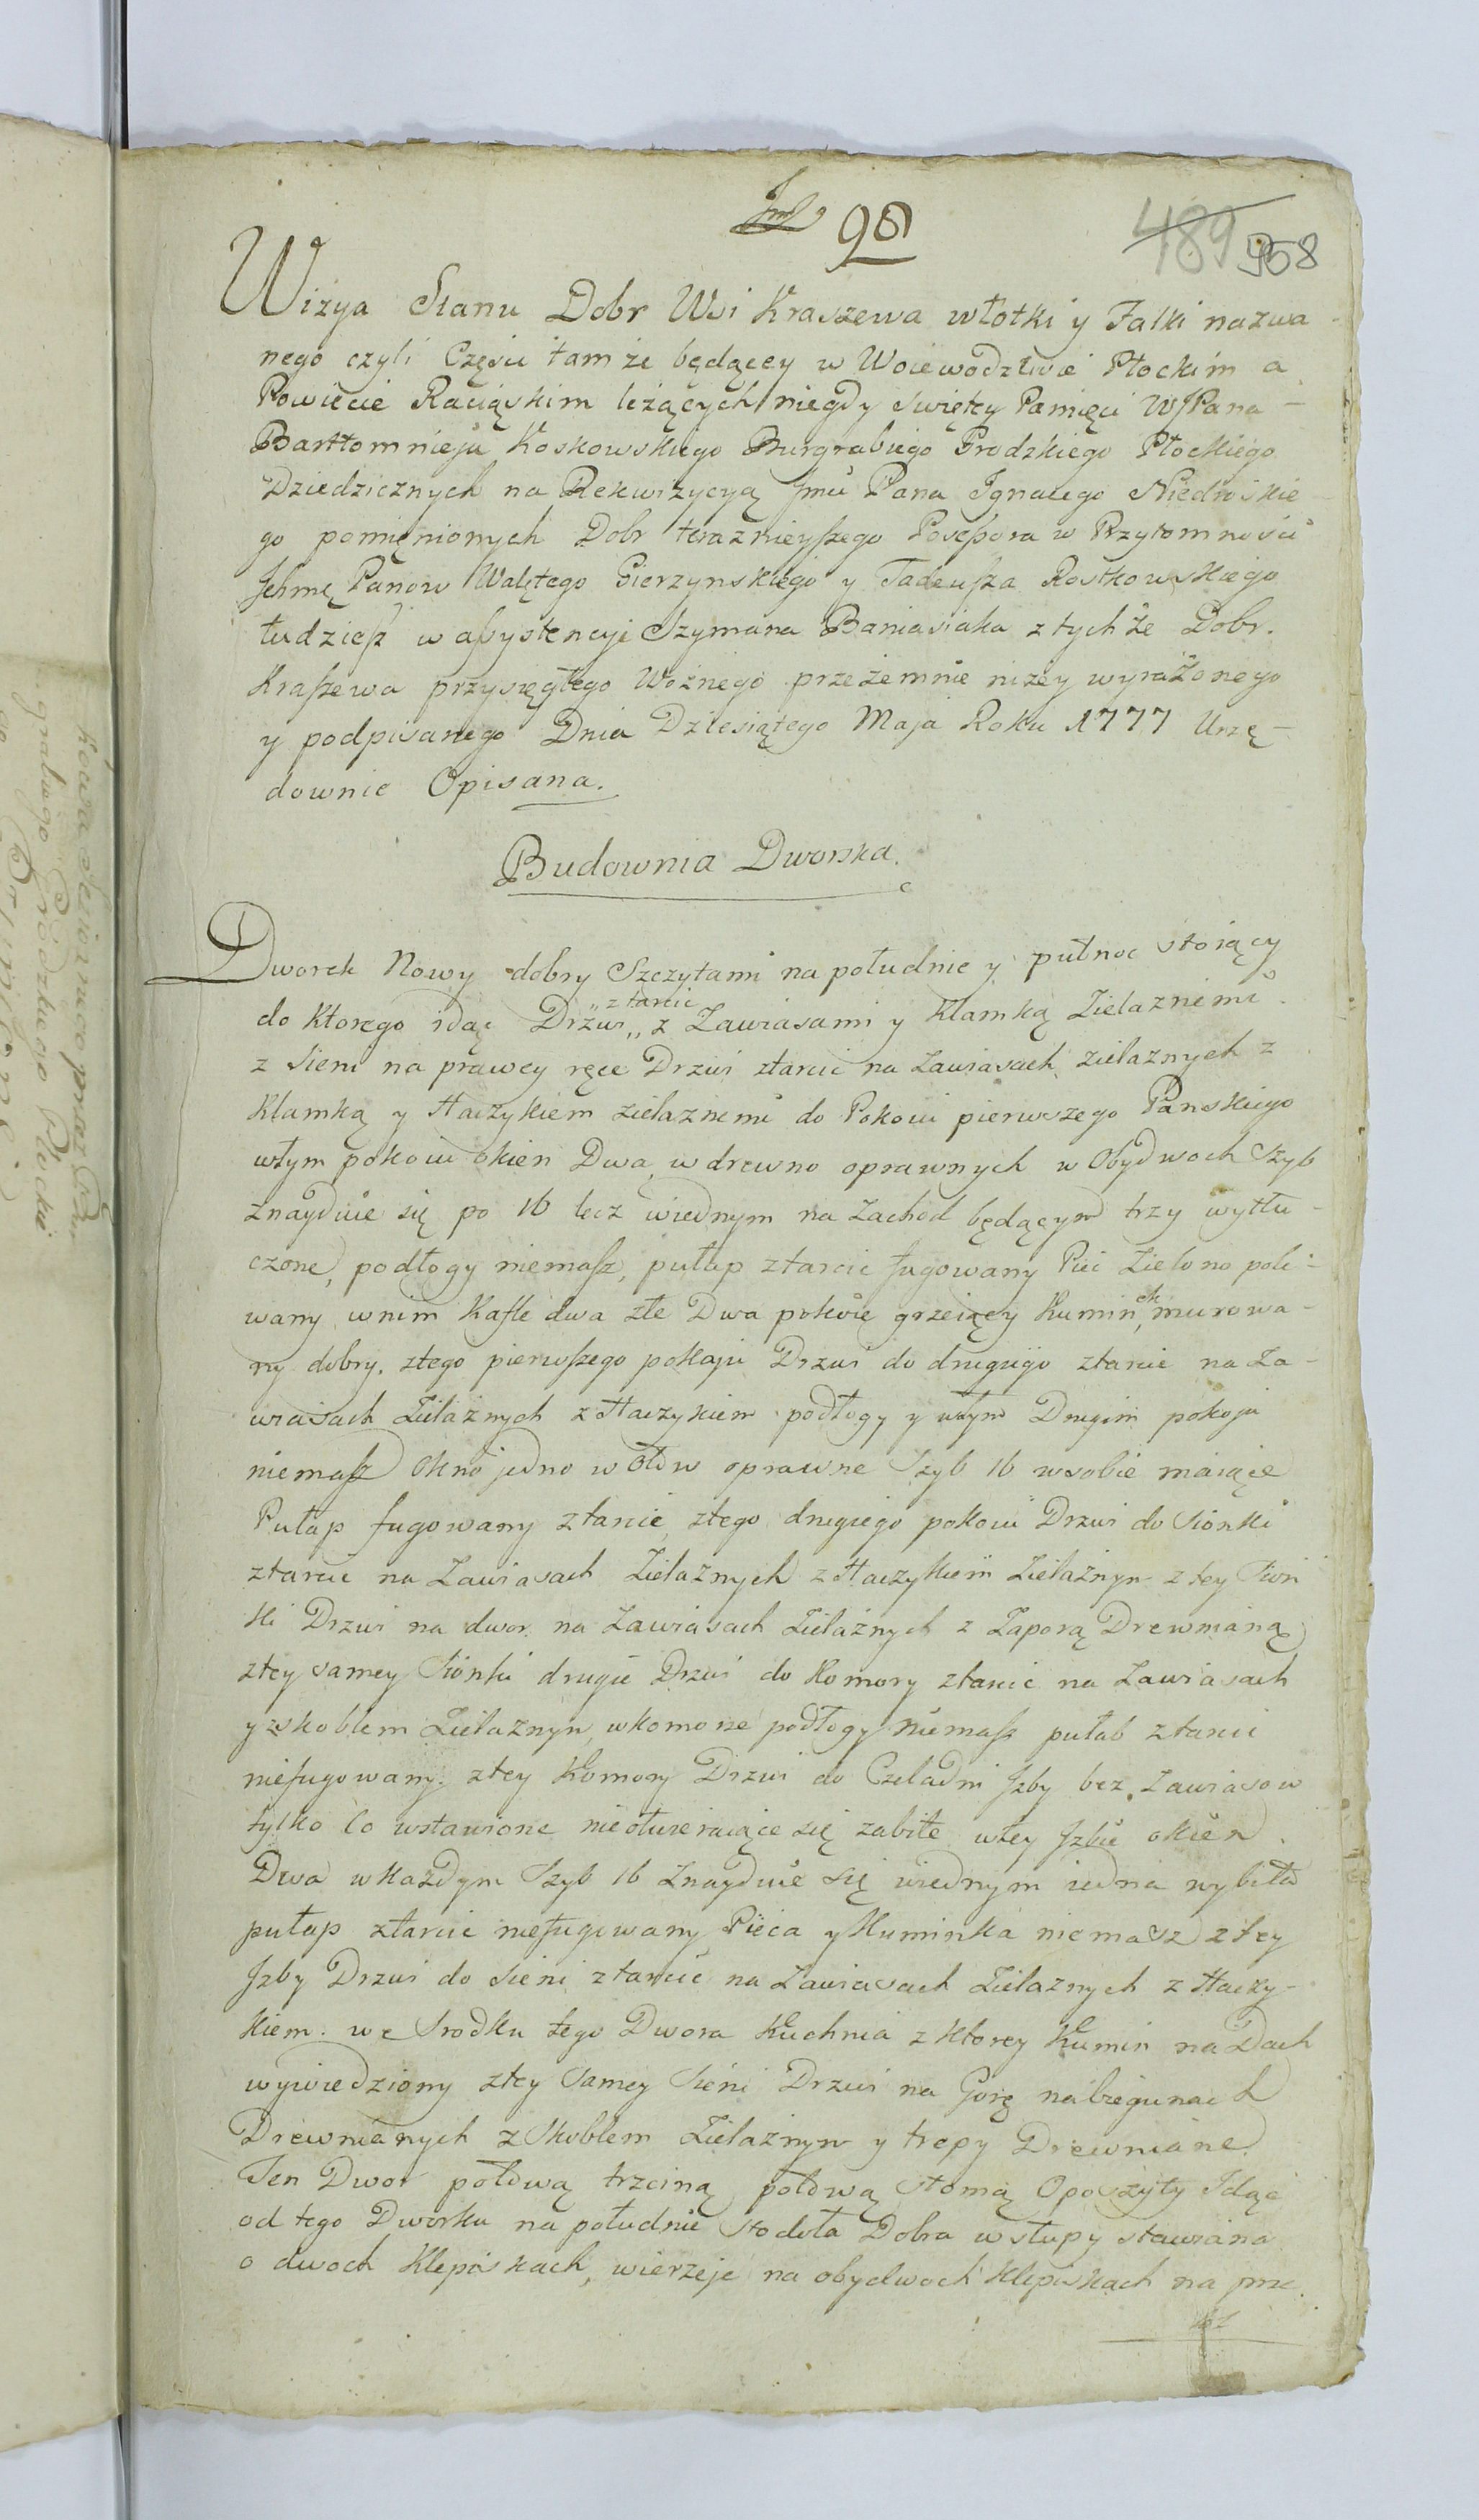 98
489 958
Wizya Stanu Dobr Wsi Kraszewa włotki y Falki nazwa-
nego czyli Części tamże będącey w Woiewodztwie Płockim a
Powiecie Raciąskim leżących niegdy swiętey Pamięci WJPana
Barttomnieja Koskowskiego Burgrabiego Grodzkiego Płockiego
Dziedzicznych na Rekwizycyą Jmci Pana Ignacego Niedroskie
go pomięnionych Dobr terazniejszego Possessora w Przytomnosci
Jchmę Panow Walętego Gierzynskiego y Tadeusza Rostkowskiego
tudziesz w assystencyi Szymana Baniasiaka z tychże Dobr.
Kraszewa przysięgłego Woznego przezemnie nizey wyrażonego
y podpisanego Dnia Dziesiątego Maja Roku 1777 Urzę-
downie Opisana.
Budownia Dworska.
Dworek Nowy dobry Szczytami na południe y pułnoc stoiący
do ktorego idąc Drzwi „ztarcic„ z Zawiasami y Klamką Zielaznemi
z Sieni na prawey ręce Drzwi ztarcic na Zawiasach zielaznych z
Klamką y Haczykiem zielaznemi do Pokoiu pierwszego Panskiego
wtym pokoiu okien Dwa w drewno oprawnych w Obydwoch Szyb
znayduie się po 16 lecz wiednym na Zachod będącym trzy wytłu-
czone, podłogy niemasz, pułap ztarcic fugowany Piec Zielono pole-
wany wnim Kafle dwa złe Dwa pokoie grzeiący Kuminek murowa-
ny dobry. ztego pierwszego pokoju Drzwi do drugiego ztarcic na Za-
wiasach Zielaznych z Haczykiem podłogy y wtym Drugim pokoju
niemasz Okno jedno w Ołow oprawne Szyb 16 wsobie maiące
Pułap fugowany ztarcic ztego drugiego pokoiu Drzwi do Sionki
ztarcic na Zawiasach Zielaznych z Haczykiem Zielaznym z tey Sion
ki Drzwi na dwor na Zawiasach Zielaznych z Zaporą Drewnianą
ztey samey Sionki drugie Drzwi do Komory ztarcic na Zawiasach
y zskoblem Zielaznym, wkomorze podłogy niemasz pułab ztarcic
niefugowany. ztey Komory Drzwi do Czeladni Jzby bez Zawiasow
tylko co wstawione nieotwieraiące się zabite wtey Jzbie okien
Dwa wkażdym Szyb 16 znayduie się wiednym iedna wybita
pułap ztarcic niefugowany Pieca y Kuminka niemasz ztey
Jzby Drzwi do Sieni ztarcic na Zawiasach Zielaznych z Haczy-
kiem. we Srodku tego Dwora Kuchnia z ktorey Kumin na Dach
wywiedziony ztey Samey Sieni Drzwi na Gorę nabiegunach
Drewnianych z Skoblem Zielaznym y trepy Drewniane
Ten Dwor połową trzciną połową słomą Oposzyty Jdąc
od tego Dworku na południe stodoła Dobra w słupy stawiana
o dwoch Klepiskach, wierzeje na obydwoch klepiskach na prze